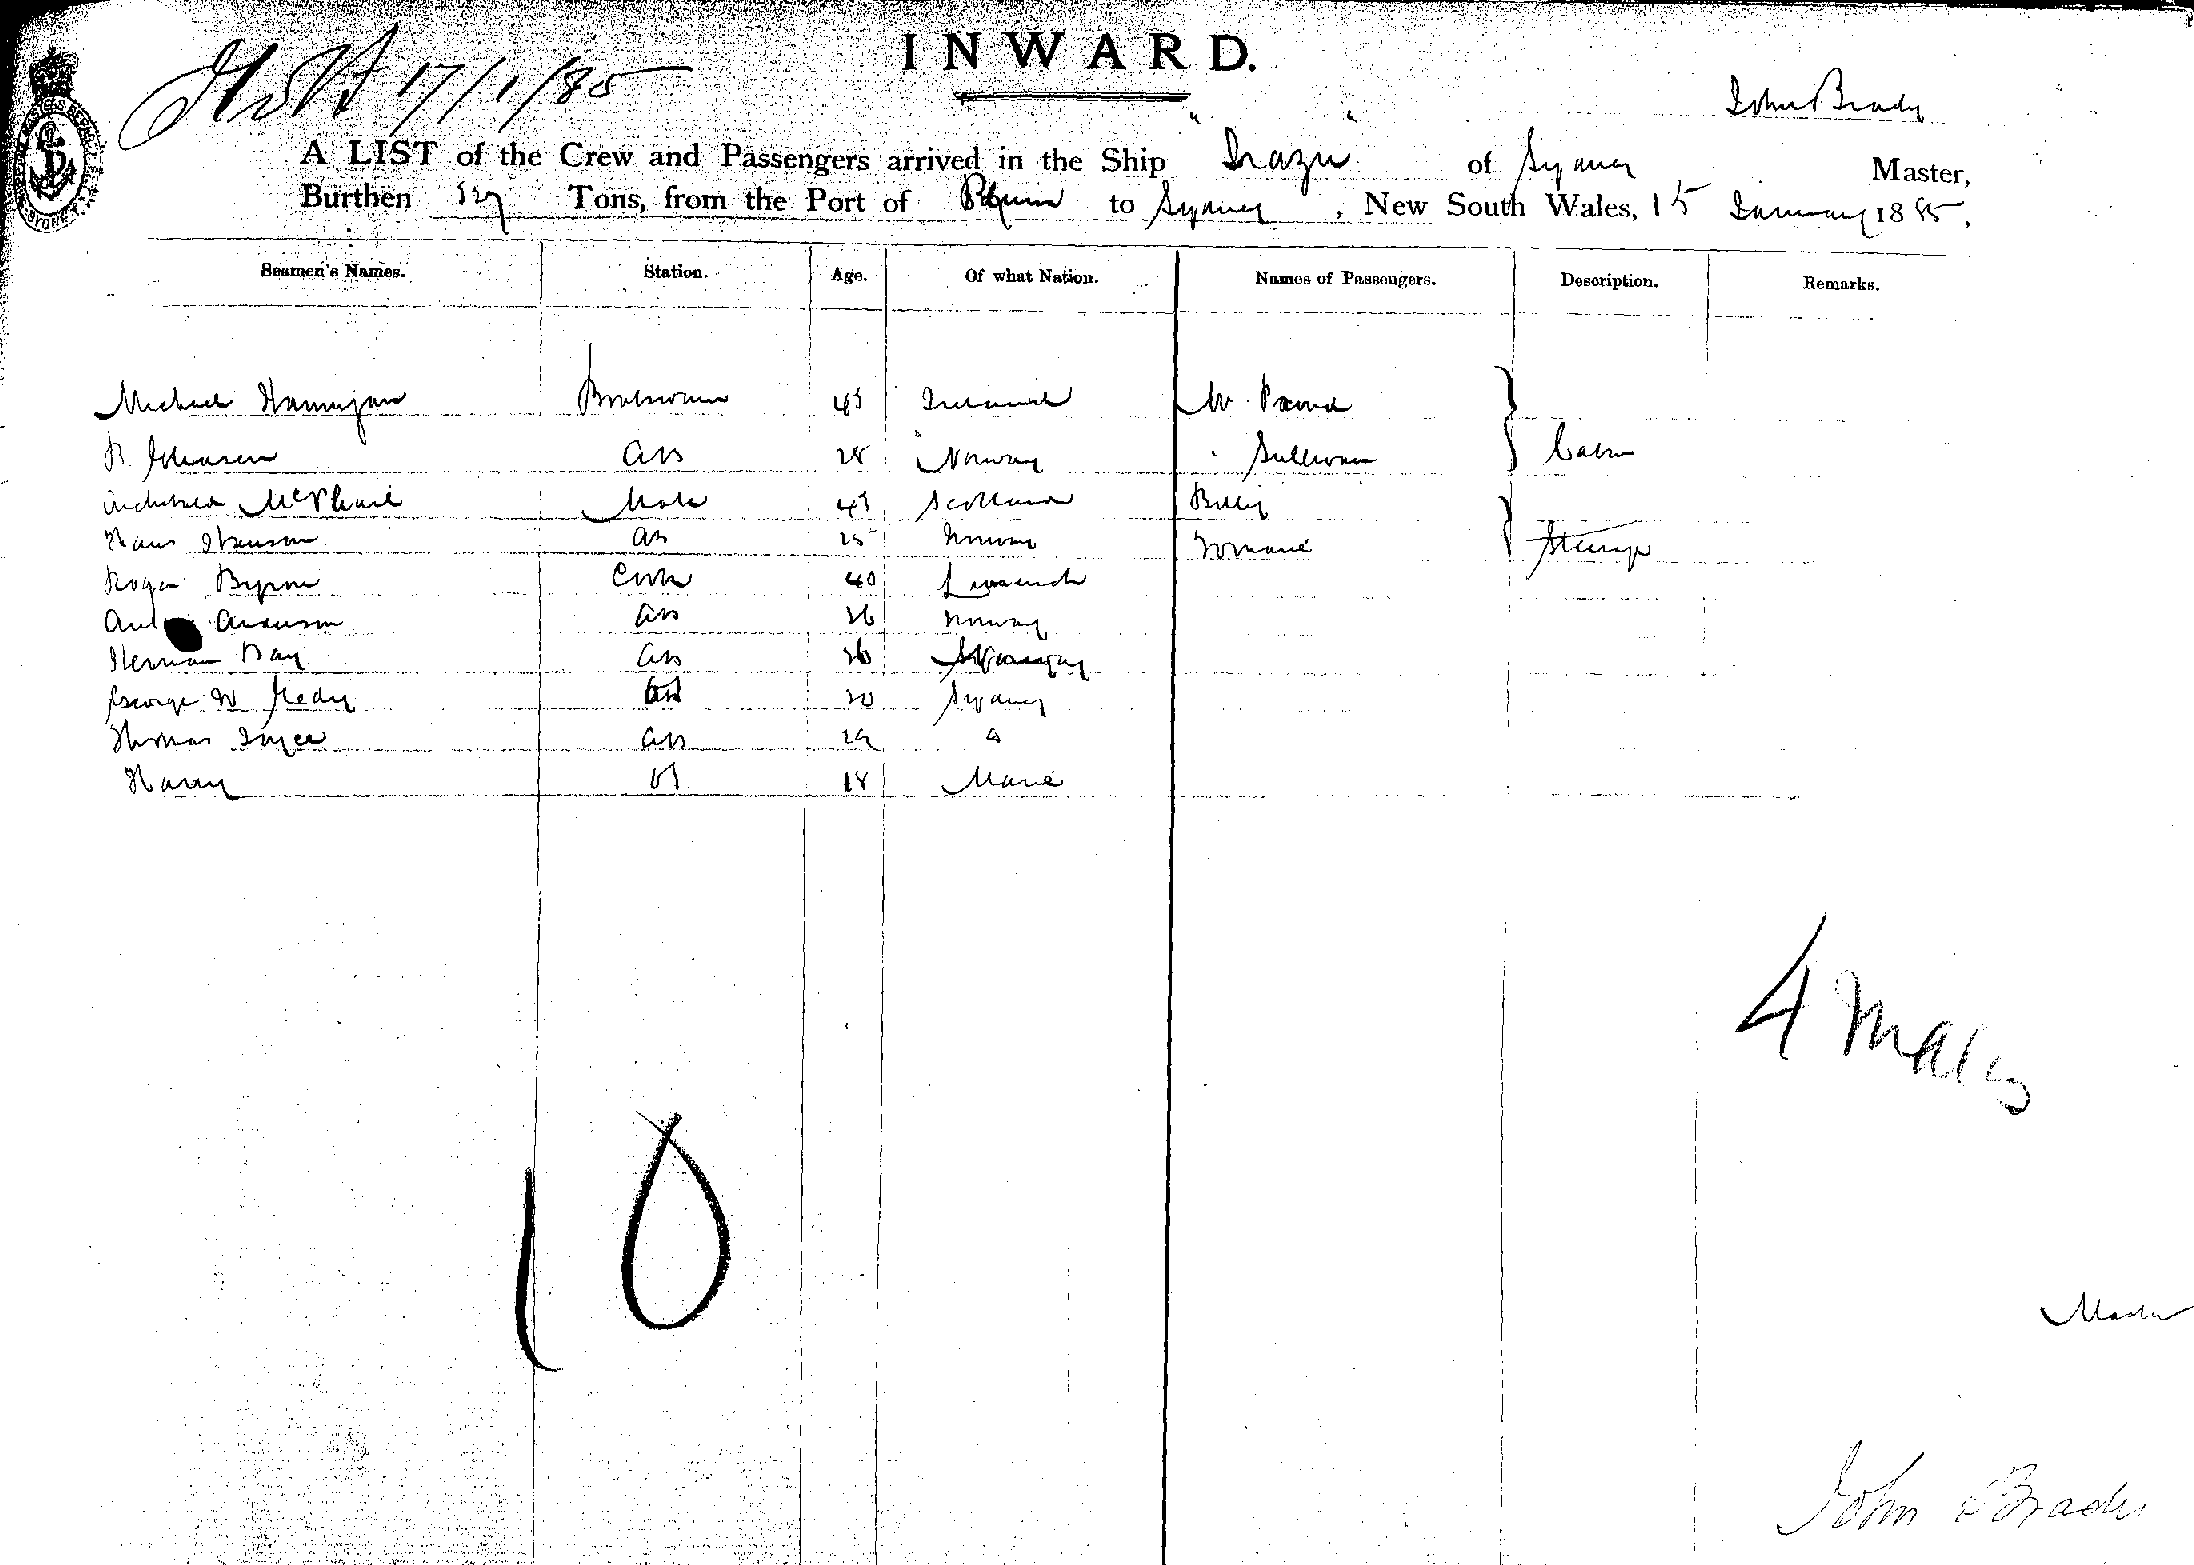 17/1/85
INWARD.
John Brady
A LIST of the Crew and Passengers arrived in the Ship " Irazu " of Sydney Master,
Burthen Tons, from the Port of to Sydney, New South Wales, 15 January 1885.
Seamen's Names. Station. Age. Of what Nation. Names of Passengers. Description. Remarks.
Michael Hannigan Boatswain 45 Ireland Mr
R. Johansen AB 28 Norway " Sullivan Cabin
Archibald McPhail Mate 45 Scotland Billy
Hans Hansen AB 25 Norway Steerage
Roger Byrne Cook 40
AB 26 Norway
Herman Day AB 26 Norway
George W AB 20 Sydney
Thomas Joyce AB 19
Harry OS 18 Maré
4 Males
10
Master
John Brady